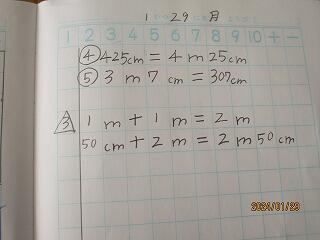 1 29 月
1 2 3 4 5 6 7 8 9 10 + −
④ 425cm = 4 m 25cm
⑤ 3 m 7 cm = 307cm
3 1 m + 1 m = 2 m
50 cm + 2 m = 2 m 50 cm
2024/01/29